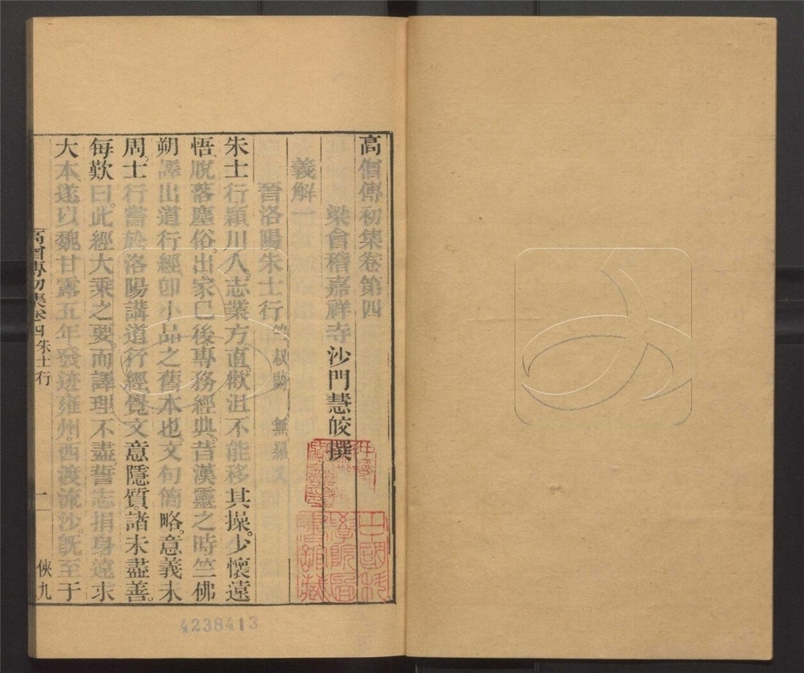 高僧傳初集卷第四
梁會稽嘉祥寺沙門慧皎撰
義解一
晉洛陽朱士行 竺叔蘭 無羅叉
朱士行潁川人。志業方直。歡沮不能移其操。少懷遠
悟。脫落塵俗。出家已後。專務經典。昔漢靈之時。竺佛
朔譯出道行經。卽小品之舊本也。文句簡略。意義未
周。士行嘗於洛陽講道行經。覺文意隱質。諸未盡善。
每歎曰。此經大乘之要。而譯理不盡。誓志捐身。遠求
大本。遂以魏甘露五年。發迹雍州。西渡流沙。旣至于
高僧傳初集卷四 朱士行 一 俠九
中國科學院圖書館藏
4238413